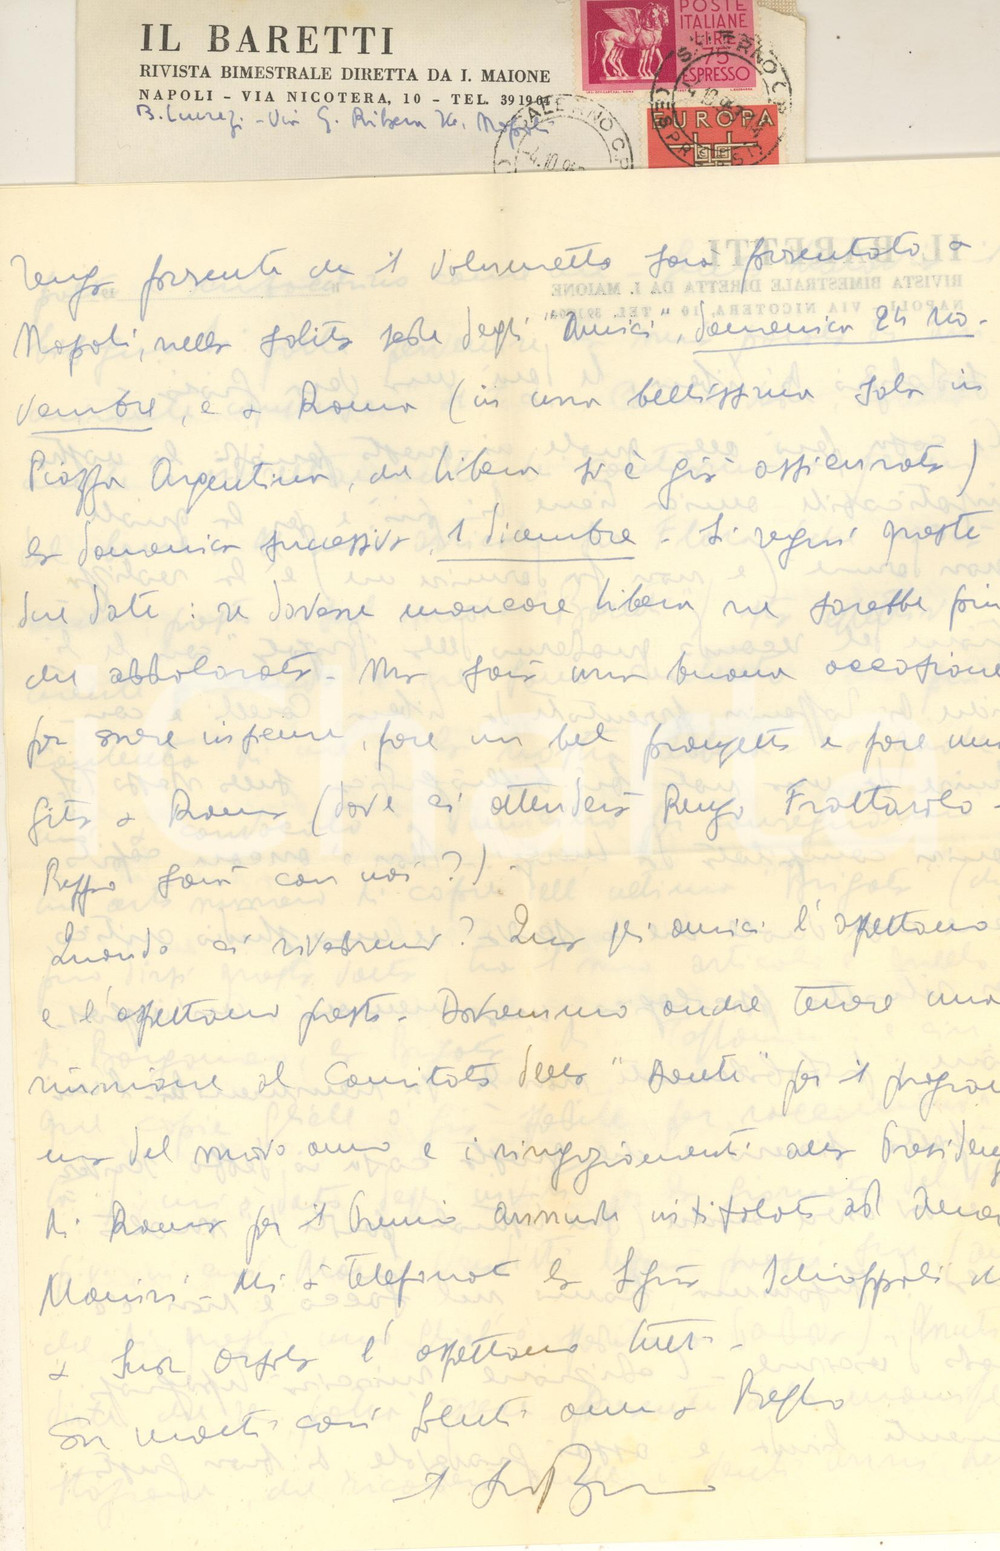 IL BARETTI
RIVISTA BIMESTRALE DIRETTA DA I. MAIONE
NAPOLI - VIA NICOTERA, 10 - TEL. 391904
B. Lucrezi - Via G. Ribera Napoli
POSTE
ITALIANE
LIRE
75
ESPRESSO
EUROPA
SALERNO C.P.
-4.10.96
Tenga presente che il volumetto sarà presentato a
Napoli, nella solita sede degli Amici, domenica 24 no-
vembre, e a Roma (in una bellissima sala in
Piazza Argentina, che Libera si è già assicurata)
la domenica successiva, 1 dicembre - Si segni queste
due date: se dovesse mancare Libera ne sarebbe più
che addolorata - Ma sarà una buona occasione
per stare insieme, fare un bel pranzetto e fare una
gita a Roma (dove ci attenderà Renzo Frattarolo -
Beppe sarà con noi?) -
Quando ci rivedremo? Qua gli amici l'aspettano
e l'aspettano presto - Dovremmo anche tenere una
riunione al Comitato della "Dante" per il program
ma del nuovo anno e i ringraziamenti alla Presidenza
di Roma per il premio annuale intitolato ad
Marini - Mi à telefonato la Sig.ra Schiappoli
a l'aspettano tutti -
Suoi tanti cari saluti anche a Beppe